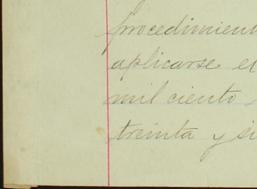 procedimien
aplicarse e
mil ciento
treinta y si